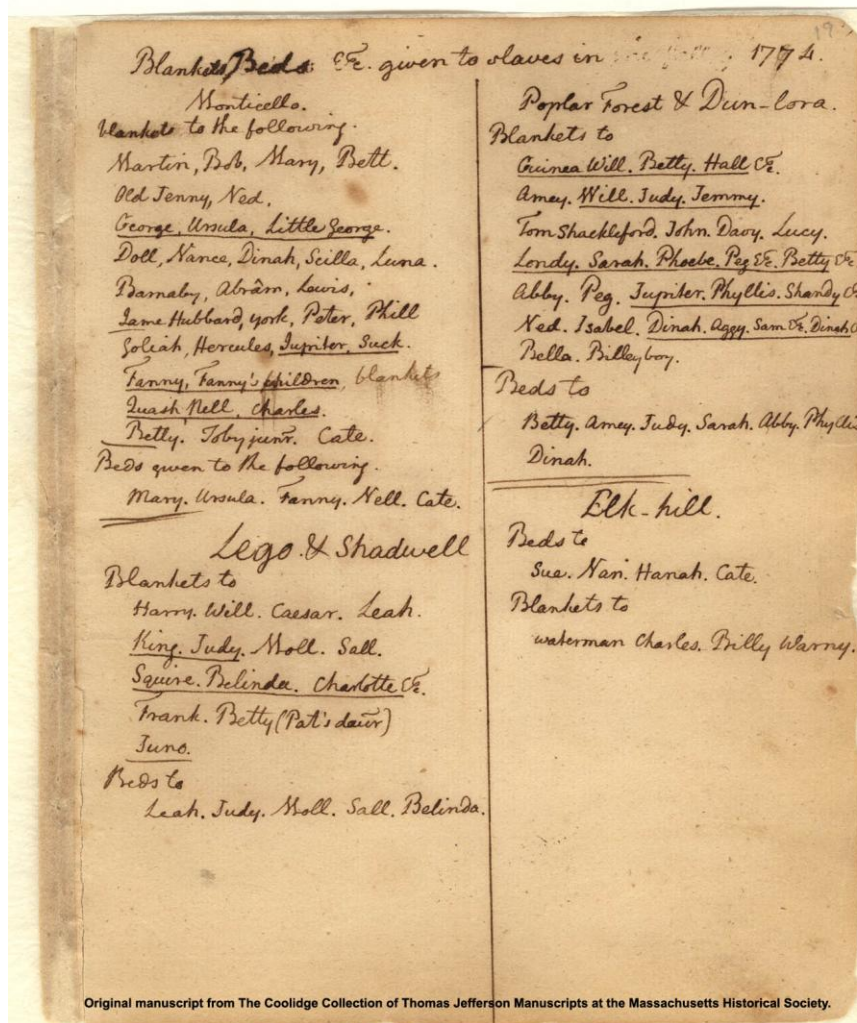 19
Blankets, Beds &c. given to slaves in 1774.
Monticello.
blankets to the following.
Martin, Bob, Mary, Bett.
Old Jenny, Ned.
George, Ursula, Little George.
Doll, Nance, Dinah, Scilla, Luna.
Barnaby, Abram, Lewis,
Jame Hubbard, york, Peter, Phill
Goliah, Hercules, Jupiter, Suck.
Fanny, Fanny's children, blankets
Quash Nell, Charles.
Betty. Toby junr. Cate.
Beds given to the following.
Mary. Ursula. Fanny. Nell. Cate.
Lego. & Shadwell
Blankets to
Harry. Will. Caesar. Leah.
King. Judy. Moll. Sall.
Squire. Belinda. Charlotte &c.
Frank. Betty (Pat's daur)
Juno.
Beds to
Leah. Judy. Moll. Sall. Belinda.
Poplar Forest & Dun-lora.
Blankets to
Guinea Will. Betty. Hall &c.
Amey. Will. Judy. Jemmy.
Tom Shackleford. John. Davy. Lucy.
Londy. Sarah. Phoebe. Peg &c. Betty &c
Abby. Peg. Jupiter. Phyllis. Shandy &
Ned. Isabel. Dinah. Aggy. Sam &c. Dinah
Bella. Billey boy.
Beds to
Betty. Amey. Judy. Sarah. Abby. Phyllis
Dinah.
Elk-hill.
Beds to
Sue. Nan. Hanah. Cate.
Blankets to
waterman Charles. Billy Warny.
Original manuscript from The Coolidge Collection of Thomas Jefferson Manuscripts at the Massachusetts Historical Society.